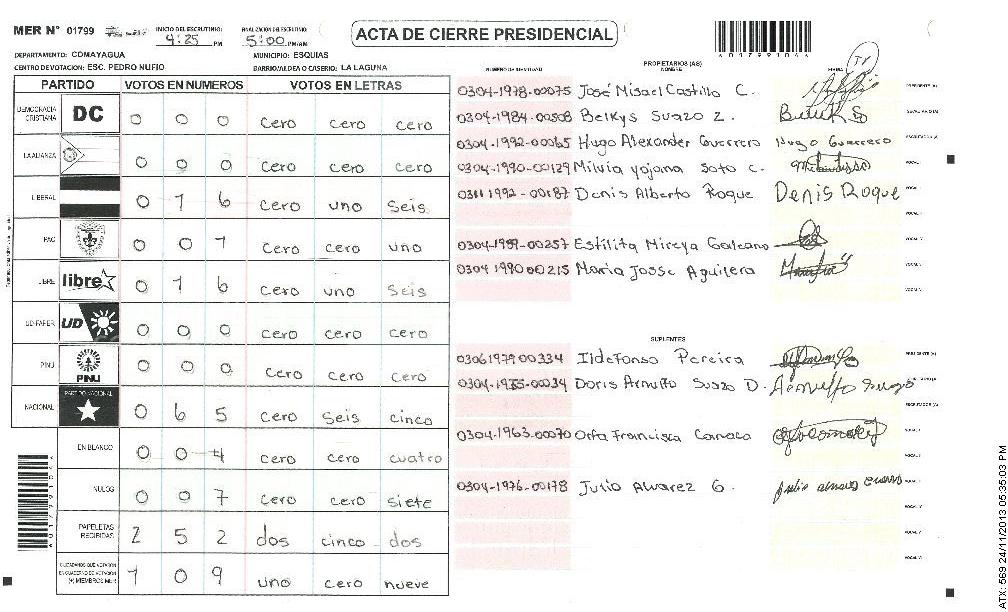 MER N° 01799
INICIO DEL ESCRUTINIO: 4:25 PM
FINALIZACION DEL ESCRUTINIO: 5:00 PM/AM
ACTA DE CIERRE PRESIDENCIAL
DEPARTAMENTO: COMAYAGUA
MUNICIPIO: ESQUIAS
CENTRO DE VOTACION: ESC. PEDRO NUFIO
BARRIO/ALDEA O CASERIO: LA LAGUNA
PARTIDO VOTOS EN NUMEROS VOTOS EN LETRAS
DEMOCRACIA CRISTIANA DC 0 0 0 cero cero cero
LA ALIANZA 0 0 0 cero cero cero
LIBERAL 0 1 6 cero uno seis
PAC 0 0 1 cero cero uno
LIBRE libre 0 1 6 cero uno seis
UD-FAPER UD 0 0 0 cero cero cero
PINU PINU 0 0 0 cero cero cero
NACIONAL PARTIDO NACIONAL 0 6 5 cero seis cinco
EN BLANCO 0 0 4 cero cero cuatro
NULOS 0 0 7 cero cero siete
PAPELETAS RECIBIDAS 2 5 2 dos cinco dos
CIUDADANOS QUE VOTARON EN CUADERNO DE VOTACION (+) MIEMBROS MER 1 0 9 uno cero nueve
NUMERO DE IDENTIDAD PROPIETARIOS (AS) NOMBRE FIRMA
0304-1978-00075 José Misael Castillo C. PRESIDENTE (A)
0304-1984-00508 Belkys Suazo Z. SECRETARIO (A)
0304-1992-00065 Hugo Alexander Guerrero Hugo Guerrero ESCRUTADOR (A)
0304-1990-00129 Milvia yojana Soto C. VOCAL
0311 1992-00187 Denis Alberto Roque Denis Roque
0304-1959-00257 Estilita Mireya Galeano
0304 1990 00215 Maria Josse Aguilera
SUPLENTES
0306 1979 00334 Ildefonso Pereira PRESIDENTE (A)
0304-1955-00034 Doris Arnulfo Suazo D. Arnulfo Suazo
0304-1963-00070 Orfa Francisca Canaca
0304-1976-00178 Julio Alvarez G.
A01799104
ATX: 569 24/11/2013 05:35:03 PM